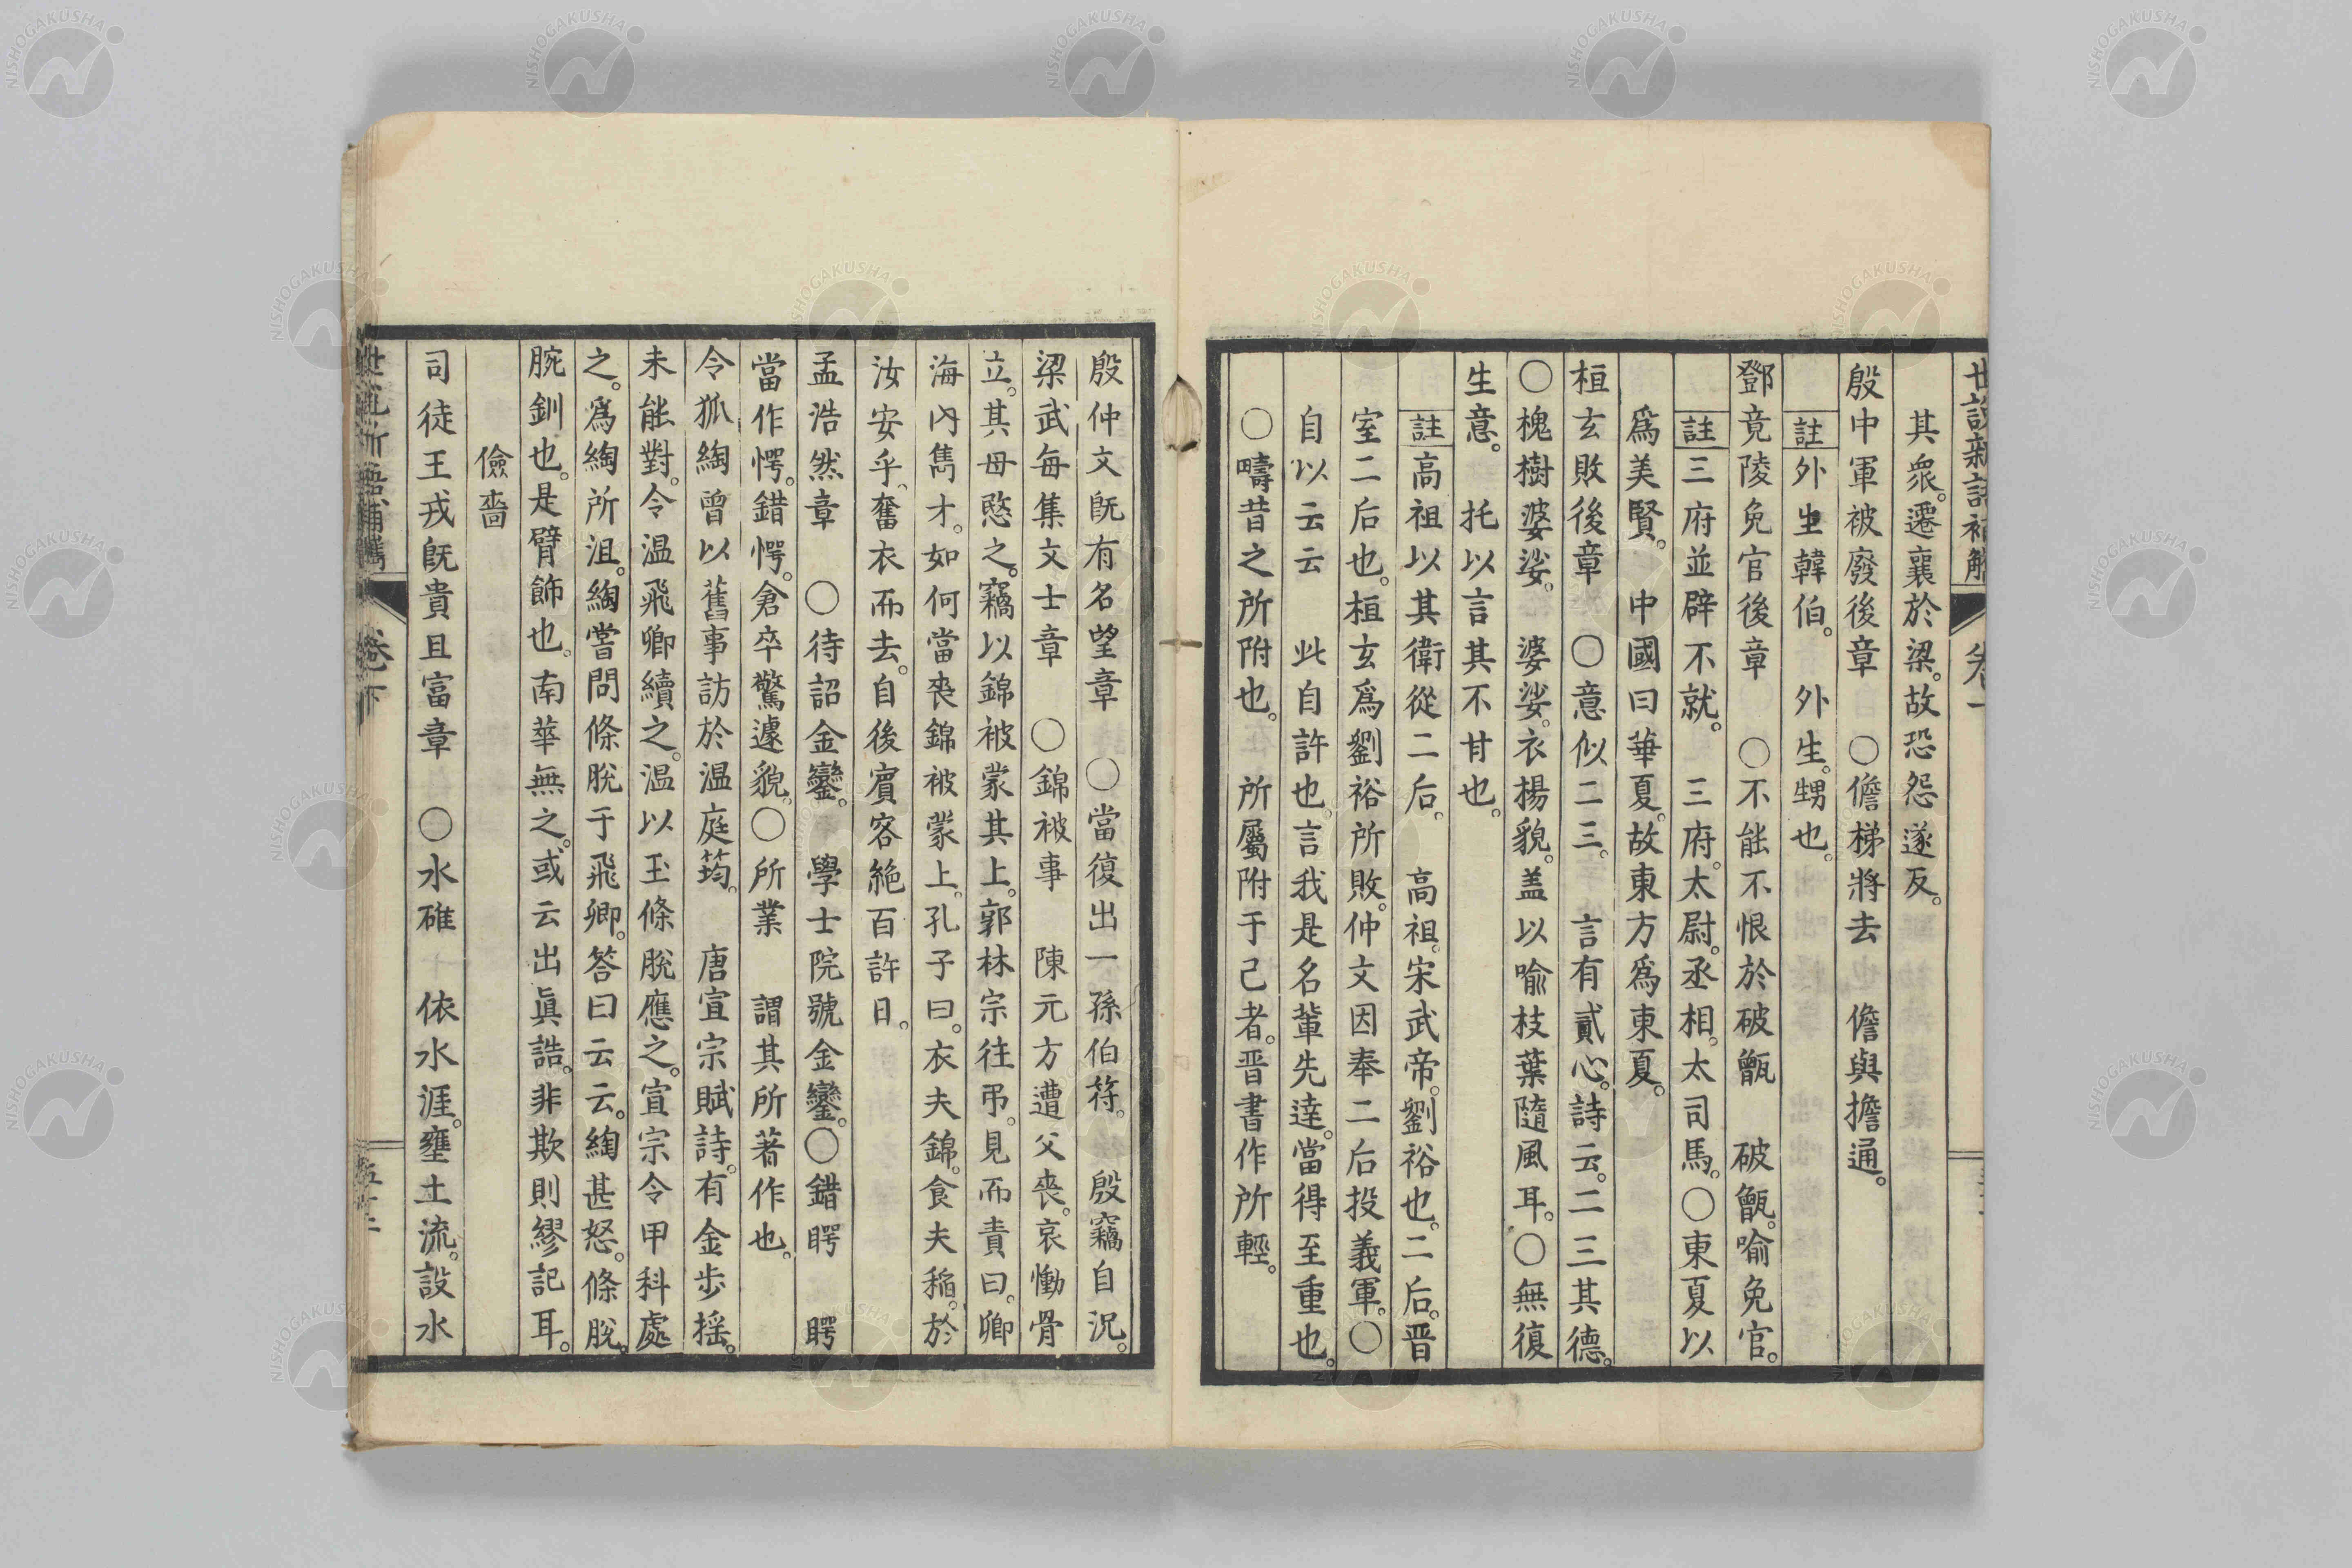 其衆。遷襄於梁。故恐怨遂反。
殷中軍被廢後章　○儋梯將去　儋與擔通。
註外生韓伯。　外生。甥也。
鄧竟陵免官後章　○不能不恨於破甑　破甑。喻免官。
註三府並辟不就。　三府。太尉。丞相。太司馬。○東夏以
爲美賢。　中國曰華夏。故東方爲東夏。
桓玄敗後章　○意似二三。　言有貳心。詩云。二三其德。
○槐樹婆娑。　婆娑。衣揚貌。盖以喻枝葉隨風耳。○無復
生意。　托以言其不甘也。
註高祖以其衛從二后。　高祖。宋武帝。劉裕也。二后。晋
室二后也。桓玄爲劉裕所敗。仲文因奉二后投義軍。○
自以云云　此自許也。言我是名輩先達。當得至重也。
○疇昔之所附也。　所屬附于己者。晋書作所輕。
殷仲文既有名望章　○當復出一孫伯符。　殷竊自況。
梁武每集文士章　○錦被事　陳元方遭父喪。哀慟骨
立。其母愍之。竊以錦被蒙其上。郭林宗往弔。見而責曰。卿
海内雋才。如何當喪錦被蒙上。孔子曰。衣夫錦。食夫稲。於
汝安乎。奮衣而去。自後賓客絶百許日。
孟浩然章　○待詔金鑾。　學士院號金鑾。○錯愕　愕
當作愕。錯愕。倉卒驚遽貌。○所業　謂其所著作也。
令狐綯曾以舊事訪於温庭筠。　唐宣宗賦詩。有金步揺。
未能對。令温飛卿續之。温以玉條脫應之。宣宗令甲科處
之。爲綯所沮。綯嘗問條脫于飛卿。答曰云云。綯甚怒。條脫。
腕釧也。是臂飾也。南華無之。或云出眞誥。非欺則繆記耳。
儉嗇
司徒王戎既貴且富章　○水碓　依水涯。壅土流。設水
卷下
NISHOGAKUSHA